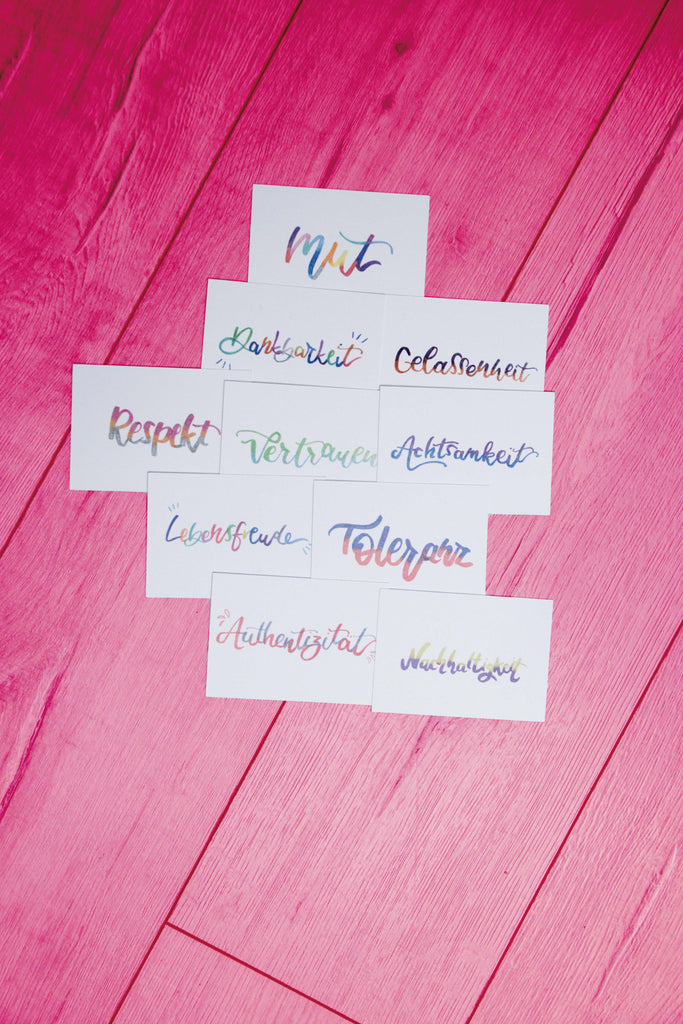 Mut
Dankbarkeit
Gelassenheit
Respekt
Vertrauen
Achtsamkeit
Lebensfreude
Toleranz
Authentizität
Nachhaltigkeit